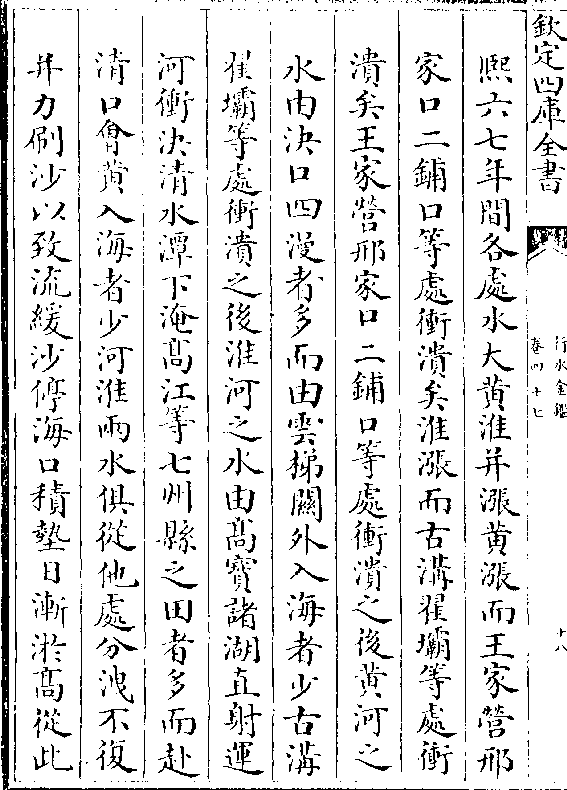 欽定四庫全書
行水金鑑
卷四十七
十八
熈六七年間各處水大黄淮并漲黄漲而王家營邢
家口二鋪口等處衝潰矣淮漲而古溝翟壩等處衝
潰矣王家營邢家口二鋪口等處衝潰之後黄河之
水由決口四漫者多而由雲梯闗外入海者少古溝
翟壩等處衝潰之後淮河之水由髙寳諸湖直射運
河衝決清水潭下淹髙江等七州縣之田者多而赴
清口㑹黄入海者少河淮兩水俱從他處分洩不復
并力刷沙以致流緩沙停海口積墊日漸淤髙從此